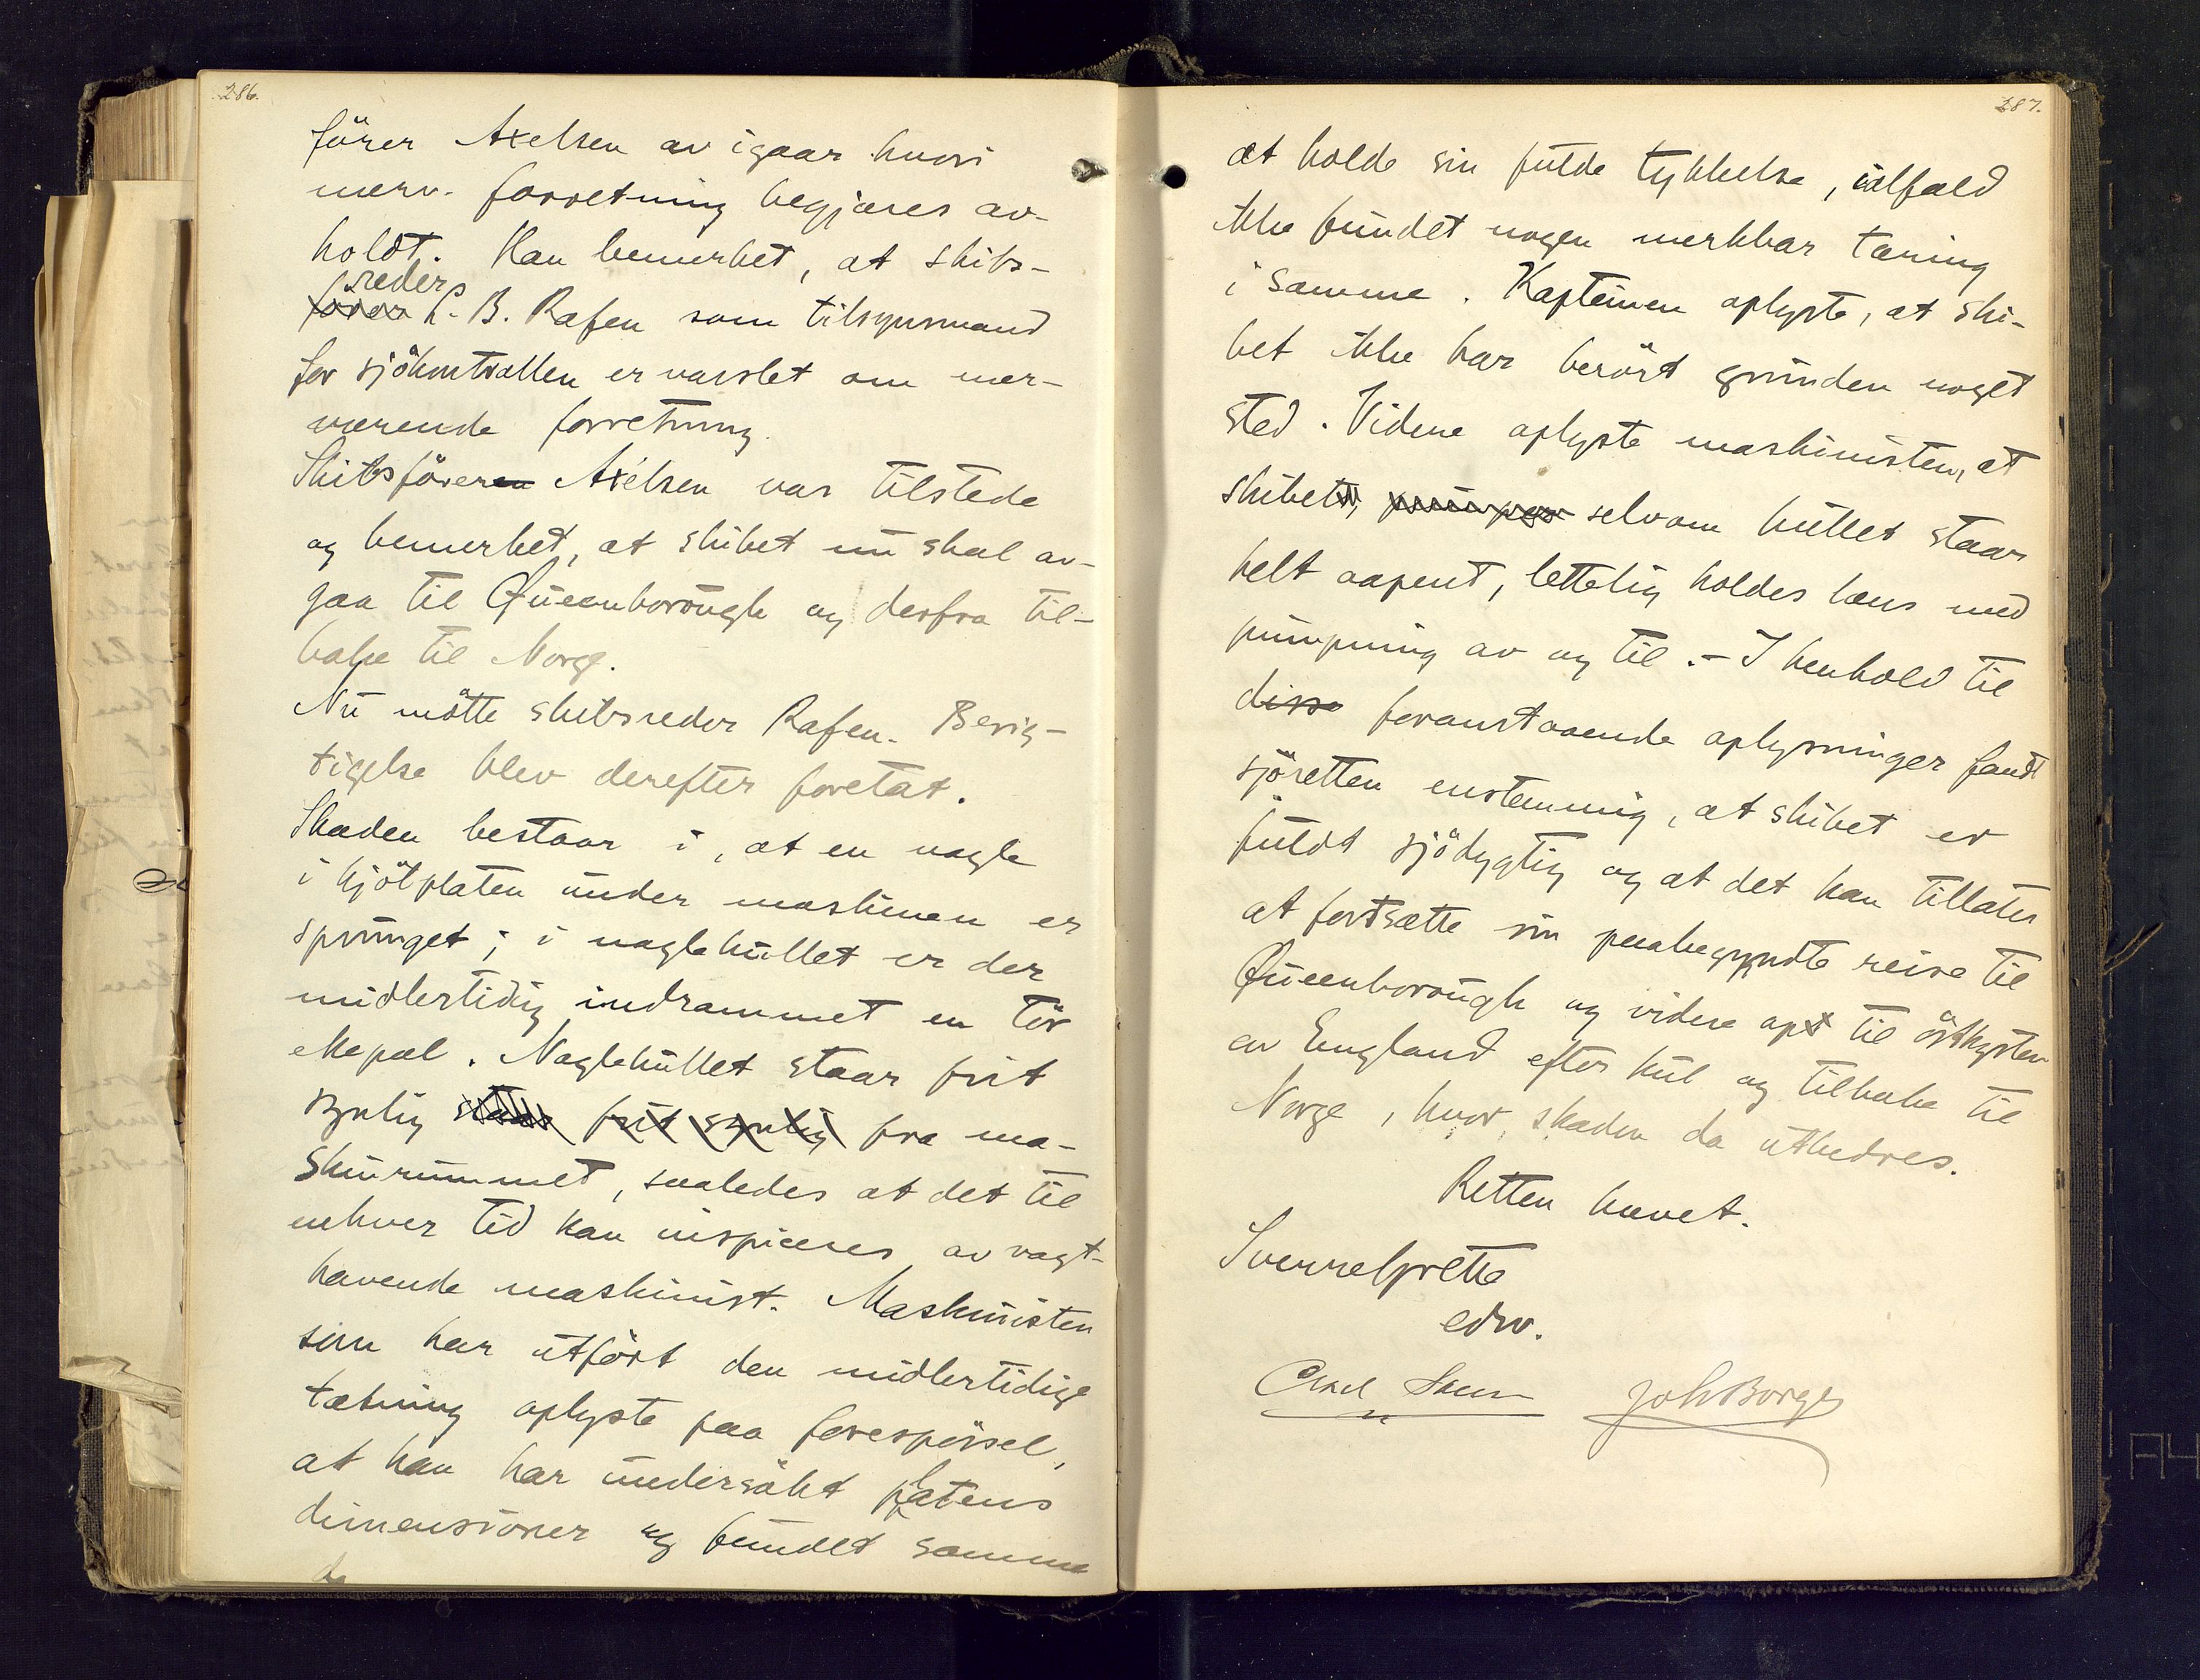 286.
förer Axelsen av igaar hvori
nærv. forretning begjæres av-
holdt. Han bemerket, at skibs-
reder
förer L. B. Rafen som tilsynsmand
for sjökontrollen er varslet om nær-
værende forretning.
Skibsföreren Axelsen var tilstede
og bemerket, at skibet nu skal av-
gaa til Queenborough og derfra til-
bake til Norge.
Nu mötte skibsreder Rafen. Besig-
tigelse blev derefter foretat.
Skaden bestaar i, at en nagle
i kjölplaten under maskinen er
sprunget; i naglehullet er der
midlertidig indrammet en tör
ekepæl. Naglehullet staar frit
synlig staar frit synlig fra ma-
skinrummet, saaledes at det til
enhver tid kan inspiceres av vagt-
havende maskinist. Maskinisten
som har utfört den midlertidige
tætning oplyste paa forespörsel,
at han har undersökt platens
dimensioner og fundet samme
287.
at holde sin fulde tykkelse, ialfald
ikke fundet nogen merkbar tæring
i samme. Kapteinen oplyste, at ski-
bet ikke har berört grunden noget
sted. Videre oplyste maskinisten, at
skibet, selvom hullet staar
helt aapent, lettelig holdes læns med
pumpning av og til. - I henhold til
disse foranstaaende oplysninger fandt
sjöretten enstemmig, at skibet er
fuldt sjödygtig og at det kan tillates
at fortsætte sin paabegyndte reise til
Queenborough og videre op til östkysten
av England efter kul og tilbake til
Norge, hvor skaden da utbedres.
Retten hævet.
Sverre Grette
edv.
Joh Borge